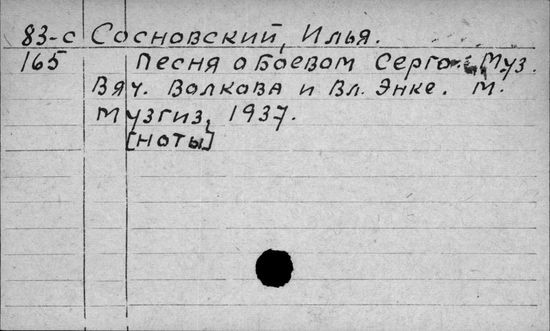 83-с Сосновский, Илья.
165 Песня о боевом Серго. Муз.
Вяч. Волкова и Вл. Энке. М.
Музгиз, 1937.
[ноты]